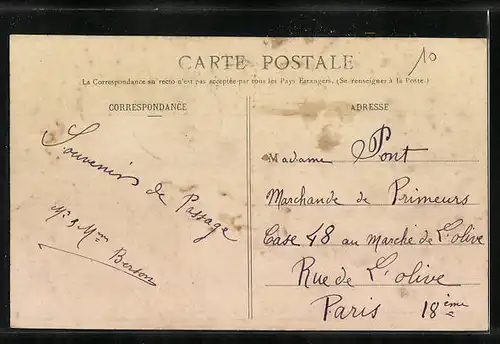 CARTE POSTALE
10
La Correspondance au recto n'est pas acceptée par tous les Pays Etrangers. (Se renseigner à la Poste.)
CORRESPONDANCE
Souvenirs de Passage
Mr & Mme
ADRESSE
Madame Pont
Marchande de Primeurs
Case 48 au Marché de L'olive
Rue de L'olive
Paris 18ème